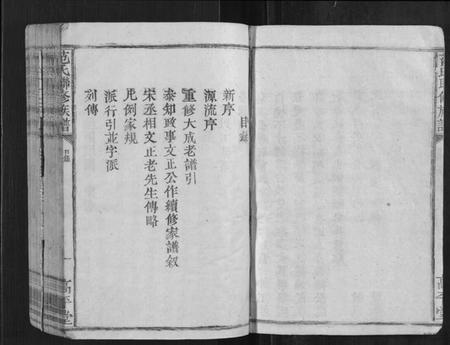 目錄
新序
源流序
重修大成老譜引
泰知政事文正公作續修家譜叙
宋丞相文正老先生傳略
凡例家規
派行引並字派
列傳
范氏聯修族譜
目錄
一
高平堂
高平堂